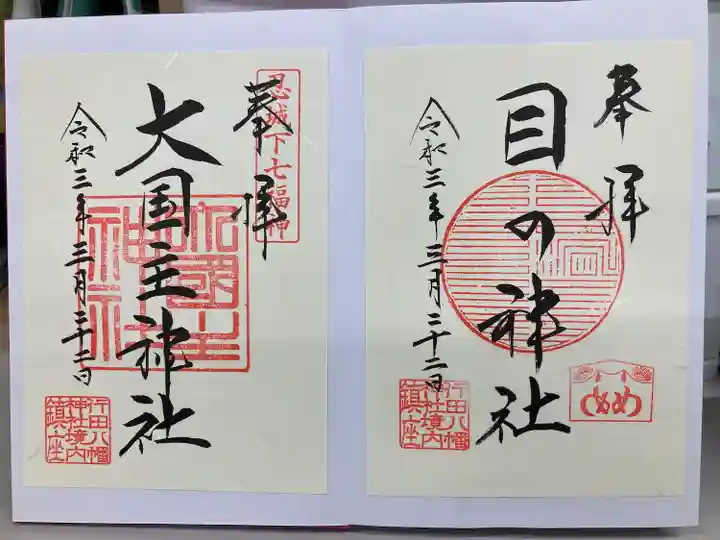 奉拝
目の神社
令和三年三月二十二日
めめ
行田八幡
神社境内
鎮座
忍城下七福神
奉拝
大国主神社
令和三年三月二十二日
大國主
神社
行田八幡
神社境内
鎮座